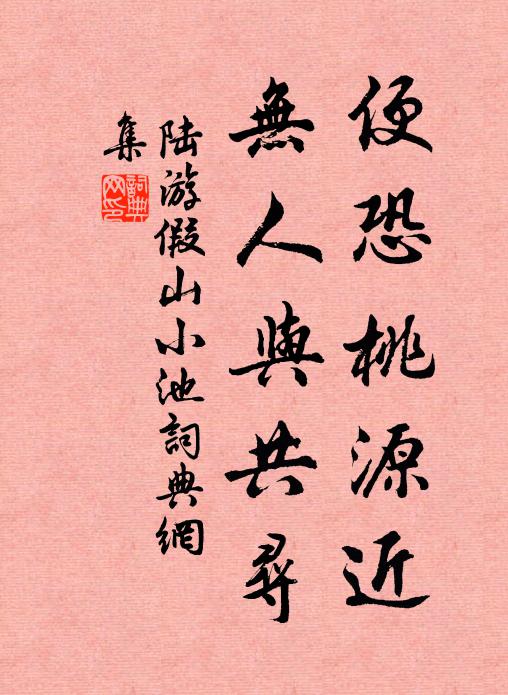 便恐桃源近
無人與共尋
陆游假山小池詞典網
集
詞典
网印